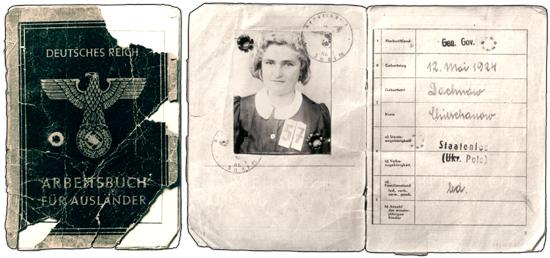 DEUTSCHES REICH
ARBEITSBUCH
FÜR AUSLÄNDER
57
Herkunftsland
Gen. Gov.
Geburtstag
12. Mai 1924
Geburtsort
Dachnow
Kreis
a) Staats-
angehörigkeit
Staatenlos
b) Volks-
zugehörigkeit
(Ukr. Pole)
a)
Familienstand
led., verh.,
verw., gesch.
led.
b) Anzahl
der minder-
jährigen
Kinder